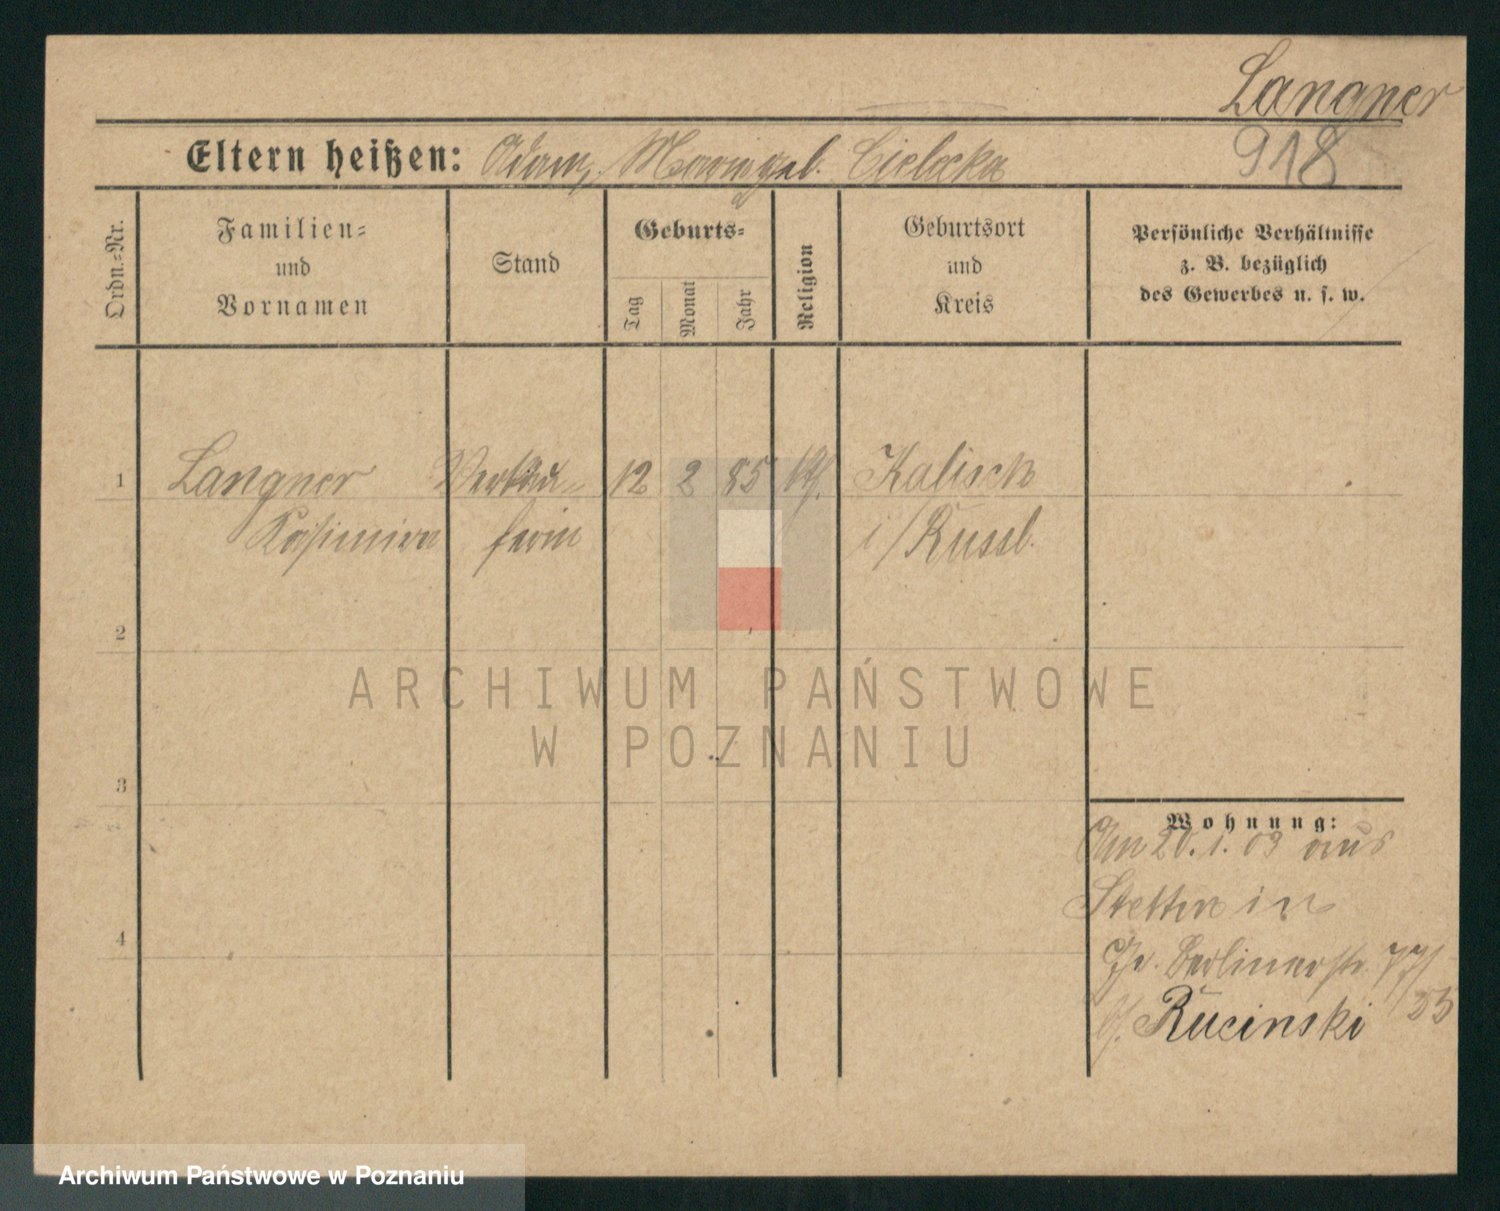 Langner
918
Eltern heißen: Adam, Maria geb. Cielecka
Ordn.-Nr.
Familien-
und
Vornamen
Stand
Geburts-
Tag
Monat
Jahr
Religion
Geburtsort
und
Kreis
Persönliche Verhältnisse
z. B. bezüglich
des Gewerbes u. s. w.
1 Langner Verkäu- 12 2 85 Kalisch
Kasimira ferin i/Russl.
2
ARCHIWUM PAŃSTWOWE
W POZNANIU
3
Wohnung:
Am 20.1.09 aus
Stettin in
Berlinerstr. 77/
b/ Rucinski
4
Archiwum Państwowe w Poznaniu